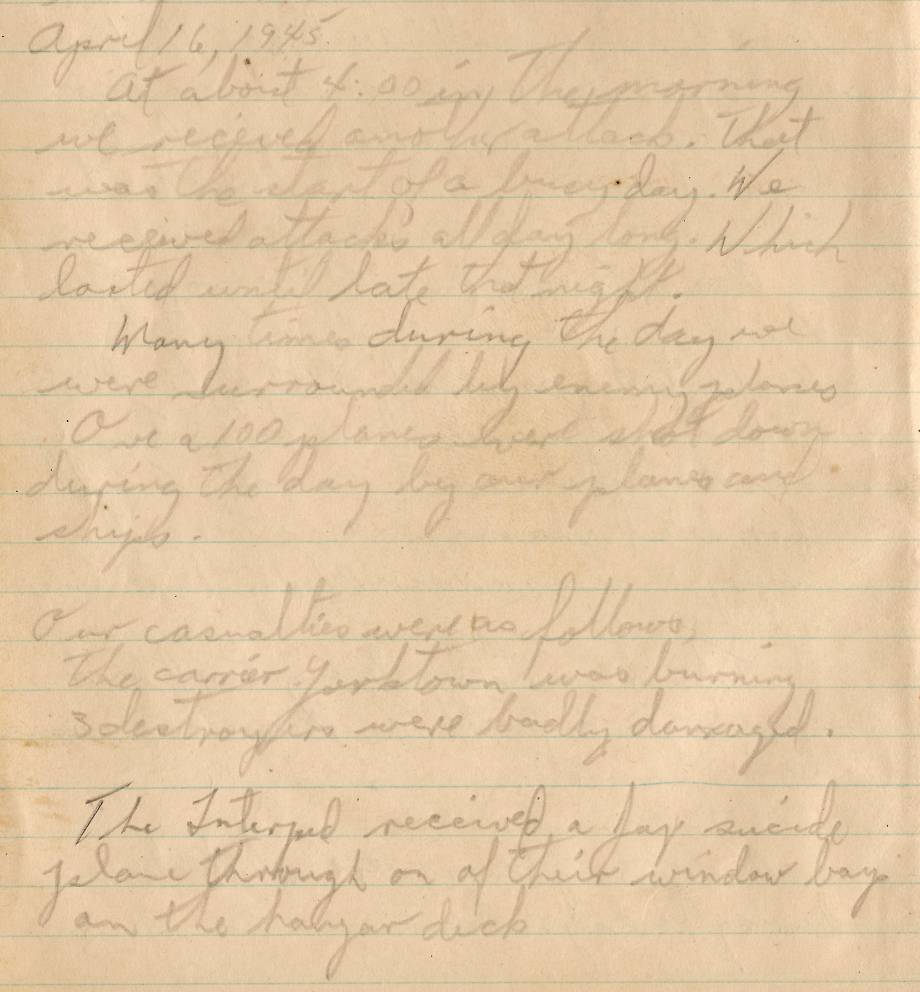 April 16, 1945
At about 4:00 in the morning
we received another attack. That
was the start of a busy day. We
received attacks all day long. Which
lasted until late that night.
Many times during the day we
were surrounded by enemy planes
Over 100 planes were shot down
during the day by our planes and
ships.
Our casualties were as follows,
The carrier Yorktown was burning
3 destroyers were badly damaged.
The Interpid received a Jap suicide
plane through on of their window bays
on the hangar deck